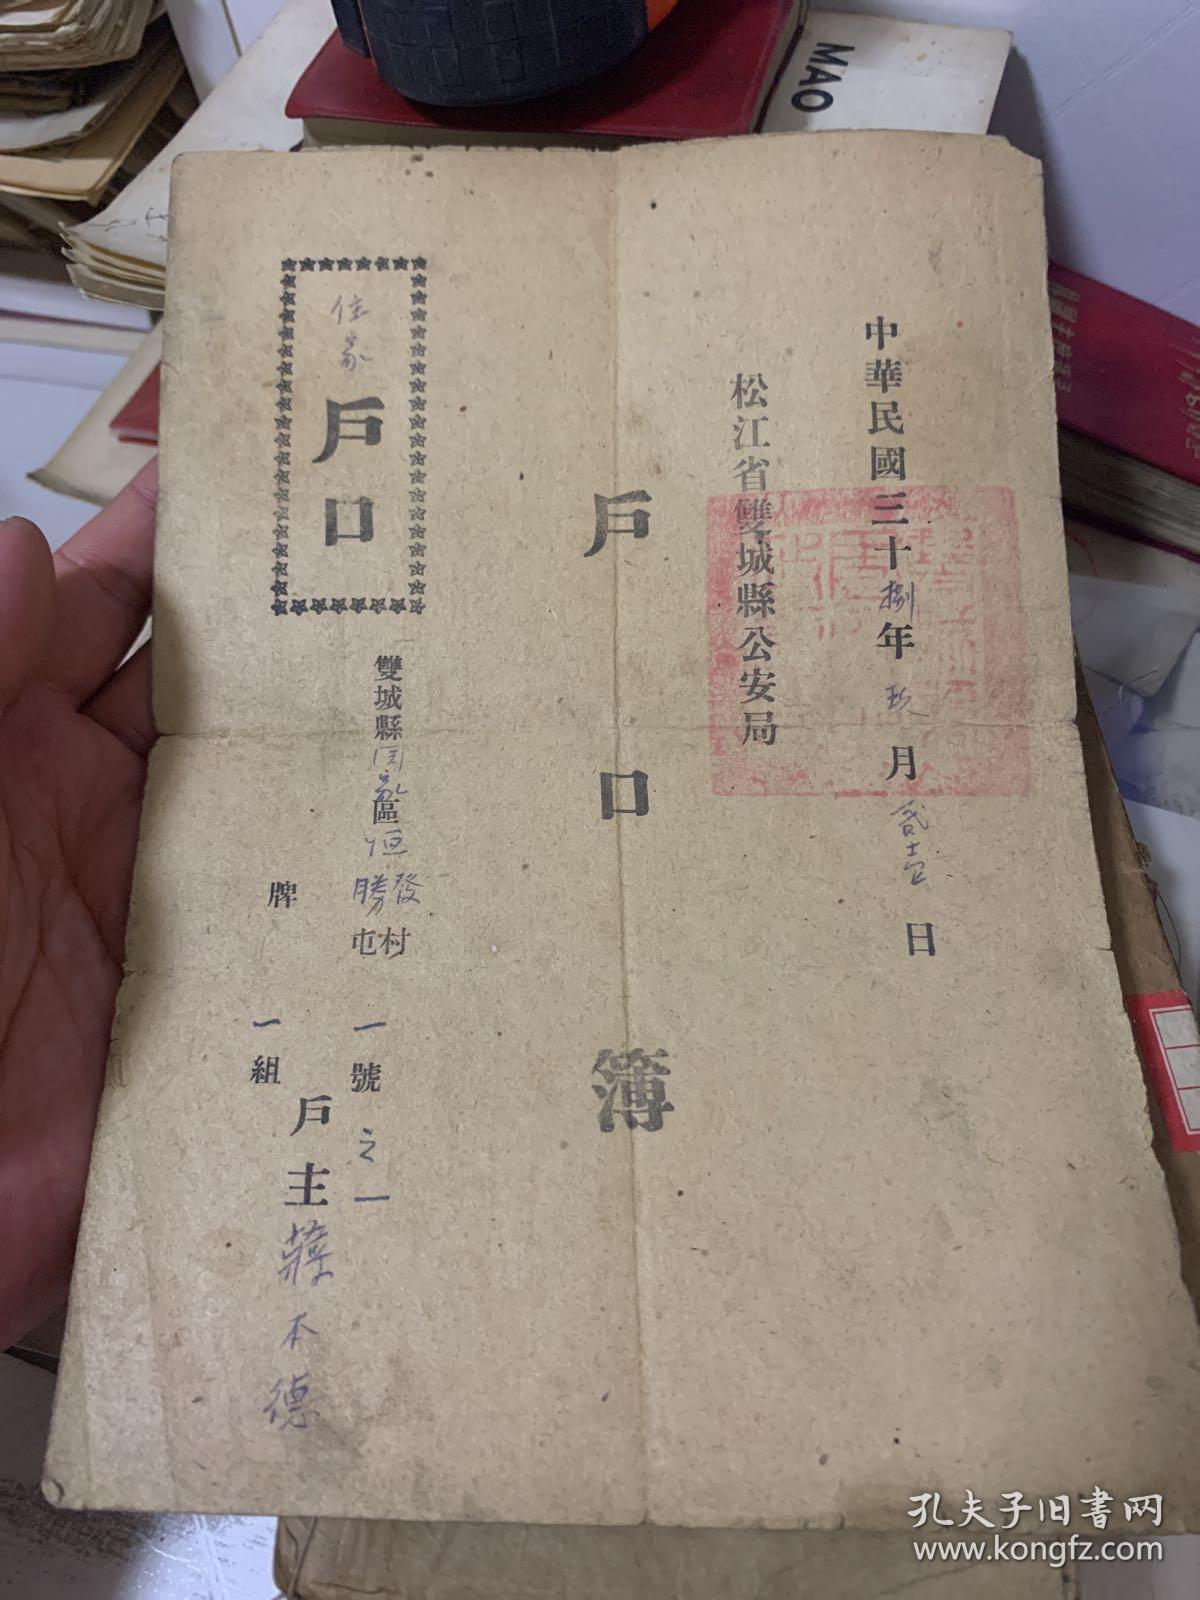 MAO
中華民國三十捌年玖月貳十壹日
松江省雙城縣公安局
戶口簿
住家戶口
雙城縣周家區恒發村
勝屯
一號之一
牌
一組
戶主蔣本德
孔夫子旧书网
www.kongfz.com